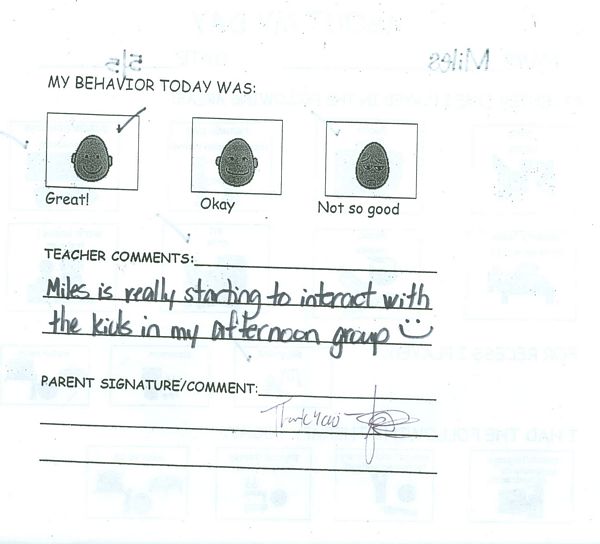 MY BEHAVIOR TODAY WAS:
Great!
Okay
Not so good
TEACHER COMMENTS:
Miles is really starting to interact with
the kids in my afternoon group
PARENT SIGNATURE/COMMENT:
Thank you